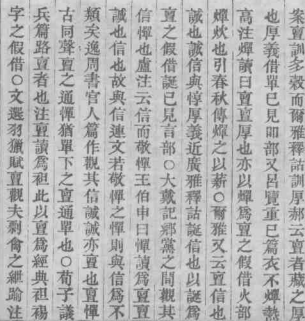 亶訓多穀而爾雅釋詁訓厚郝云亶者藏之厚
也厚義借單已見叩部又呂覽重已篇衣不燀熱
高注燀讀曰亶亶厚也亦以燀爲亶之假借火部
燀炊也引春秋傳燀之以薪○爾雅又云亶信也
誠也誠信與惇厚義近廣雅釋詁誕信也以誕爲
亶之假借誕已見言部○大戴記郷黨之間觀其
信憚也盧注云信而敬憚王伯申曰憚讀爲亶亶
誠也信也故與信連文若敬憚之憚則與信爲不
類矣逸周書官人篇作觀其信誠誠亦亶也亶憚
古同聲亶之通憚猶單下之亶通單也○荀子議
兵篇路亶者也注亶讀爲袒此以亶爲經典袒裼
字之假借○文選羽獵賦亶觀夫剽禽之紲隃注